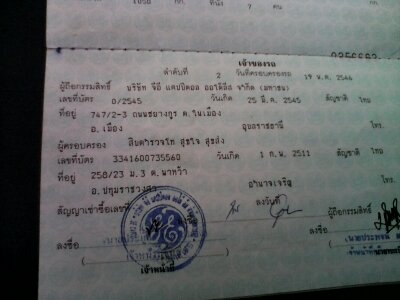 กก. ที่นั่ง 7 คน
เจ้าของรถ
ลำดับที่ 2 วันที่ครอบครองรถ 19 พ.ค. 2546
ผู้ถือกรรมสิทธิ์ บริษัท จีอี แคปปิตอล ออโต้ลีส จำกัด (มหาชน)
เลขที่บัตร 0/2545 วันเกิด 25 มี.ค. 2545 สัญชาติ ไทย
ที่อยู่ 747/2-3 ถนนชยางกูร ต.ในเมือง
อ.เมือง อุบลราชธานี โทร.
ผู้ครอบครอง สิบตำรวจโท
เลขที่บัตร 3341600735560 วันเกิด 1 ก.พ. 2511 สัญชาติ ไทย
ที่อยู่ 258/23 ม.3 ต.นาหว้า
อ.ปทุมราชวงศา อำนาจเจริญ โทร.
สัญญาเช่าซื้อเลขที่ ลงวันที่ ผู้ถือกรรมสิทธิ์
ลงชื่อ ลงชื่อ
เจ้าหน้าที่